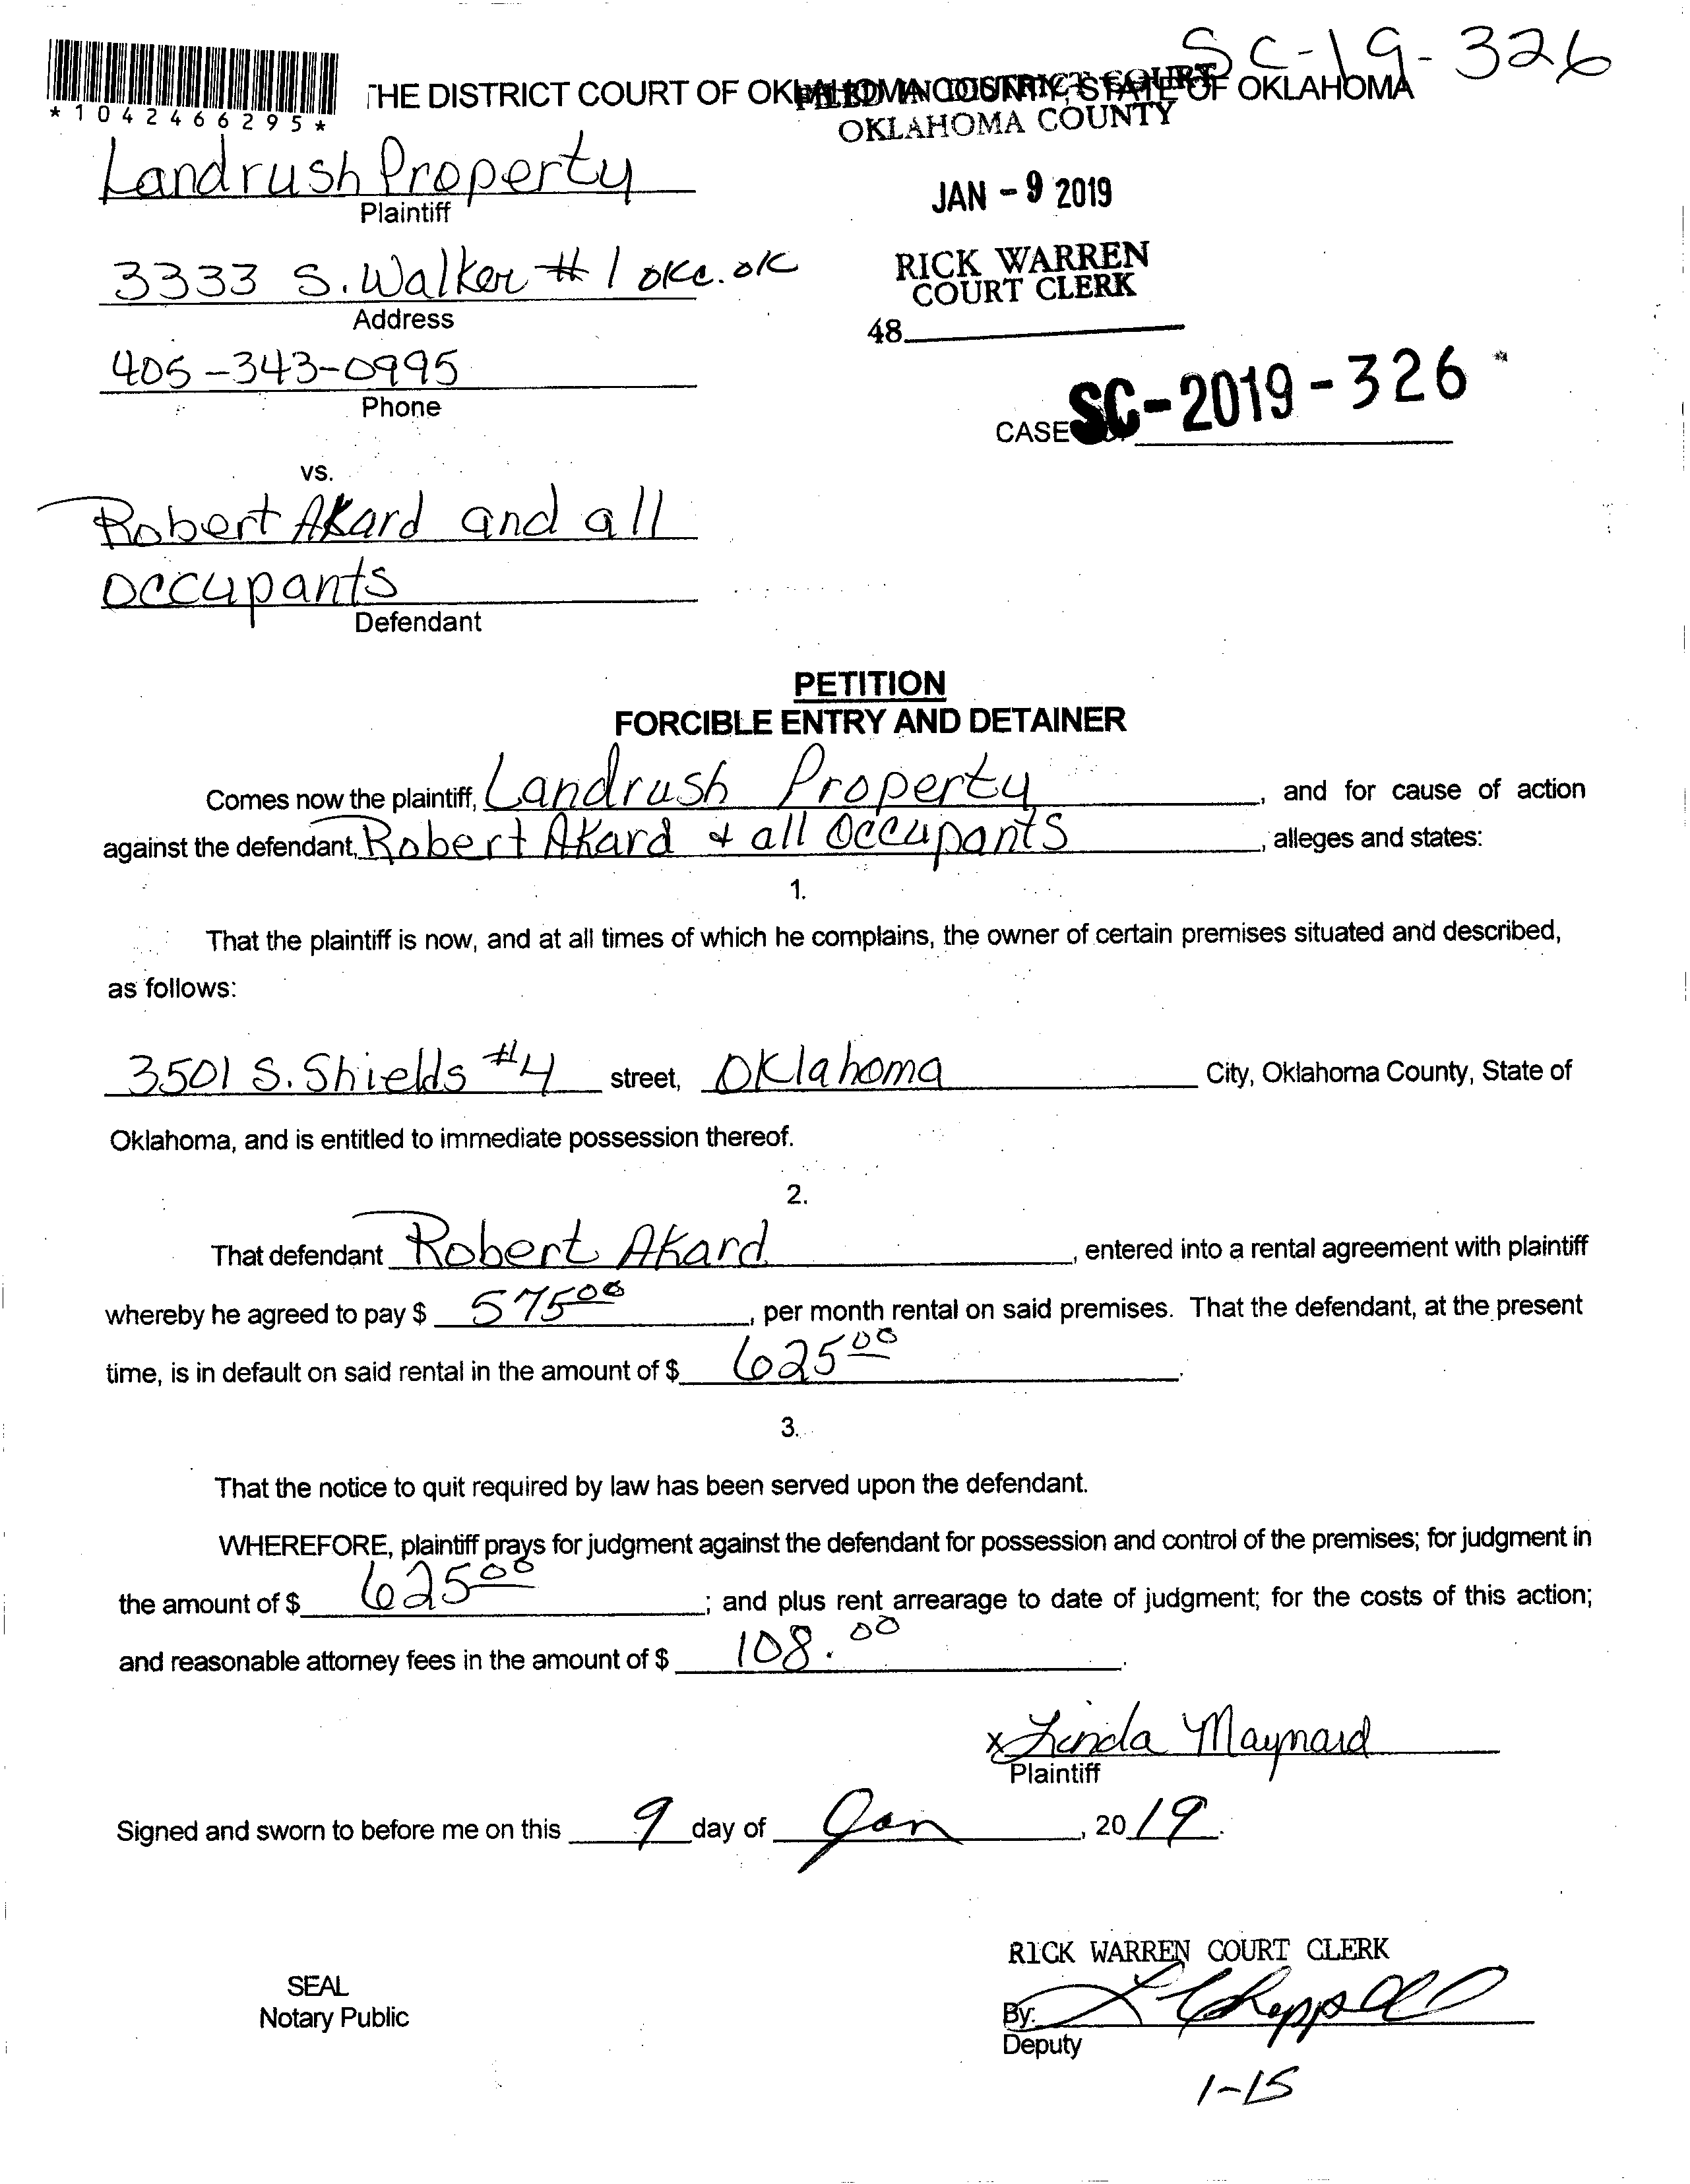 SC-19-326
*1042466295*
THE DISTRICT COURT OF OKLAHOMA COUNTY, STATE OF OKLAHOMA
FILED IN DISTRICT COURT
OKLAHOMA COUNTY
Landrush Property
Plaintiff
JAN - 9 2019
3333 S. Walker #1 okc. ok
Address
RICK WARREN
COURT CLERK
48
405-343-0995
Phone
CASE SC-2019-326
vs.
Robert Akard and all
occupants
Defendant
PETITION
FORCIBLE ENTRY AND DETAINER
Comes now the plaintiff, Landrush Property, and for cause of action
against the defendant, Robert Akard + all Occupants, alleges and states:
1.
That the plaintiff is now, and at all times of which he complains, the owner of certain premises situated and described,
as follows:
3501 S. Shields #4 street, Oklahoma City, Oklahoma County, State of
Oklahoma, and is entitled to immediate possession thereof.
2.
That defendant Robert Akard, entered into a rental agreement with plaintiff
whereby he agreed to pay $ 575 00, per month rental on said premises. That the defendant, at the present
time, is in default on said rental in the amount of $ 625 00.
3.
That the notice to quit required by law has been served upon the defendant.
WHEREFORE, plaintiff prays for judgment against the defendant for possession and control of the premises; for judgment in
the amount of $ 625 00; and plus rent arrearage to date of judgment; for the costs of this action;
and reasonable attorney fees in the amount of $ 108.00.
x Linda Maynard
Plaintiff
Signed and sworn to before me on this 9 day of Jan, 2019.
RICK WARREN COURT CLERK
SEAL
Notary Public
By:
Deputy
1-15